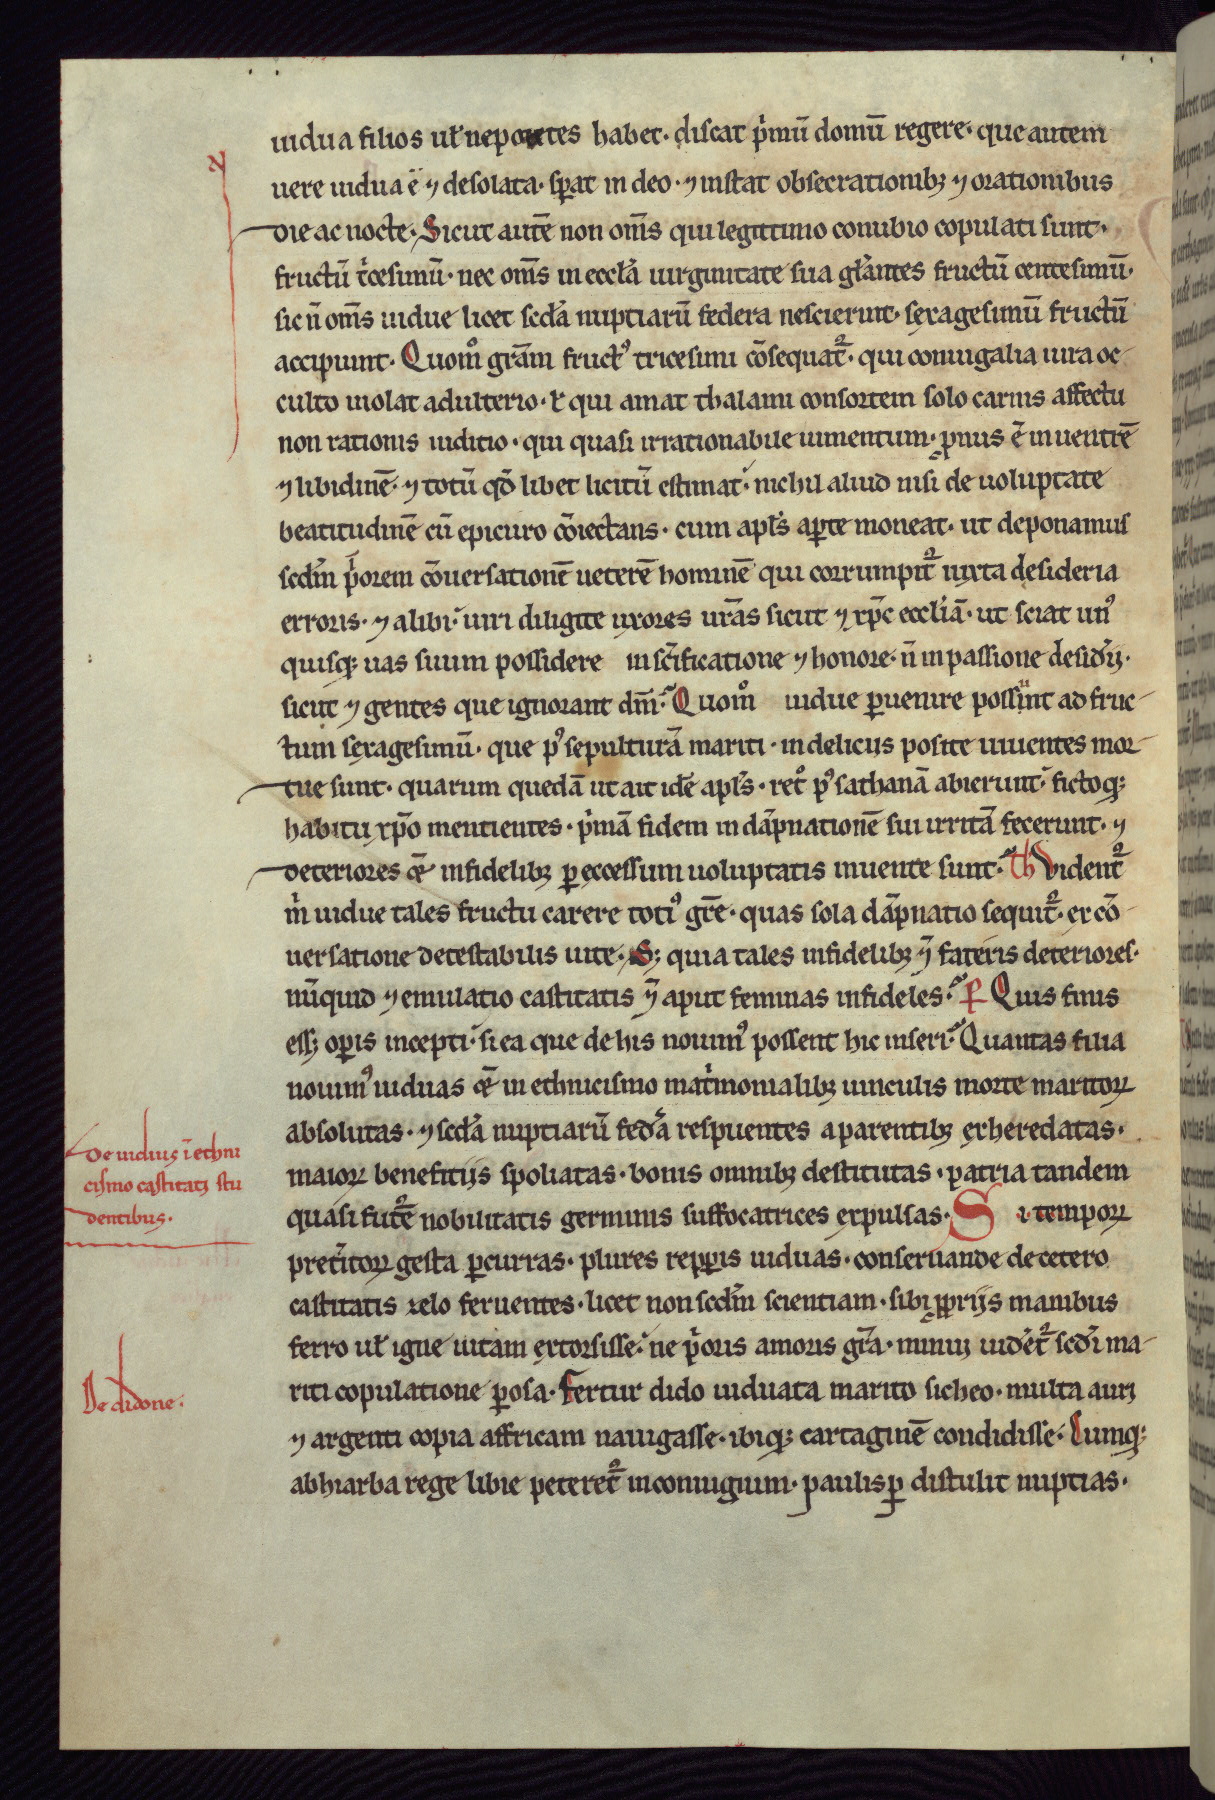 uidua filios uł nepotes habet· discat p̓mū domū regere· que autem
N
uere uidua ē ⁊ desolata· sp̄at in deo· ⁊ instat obsecrationibꝫ ⁊ orationibus
die ac nocte· Sicut autē non om̄s qui legittimo conubio copulati sunt·
fructū t̓cesimū· nec om̄s in eccła uirginitate sua gło̓antes fructū centesimū·
sic n̄ om̄s uidue licet scd̓a nuptiarū federa nescierunt· sexagesimū fructū
accipiunt· Quom̊ gr̄am fructꝰ tricesimi cōsequat᷑· qui coniugalia iura oc-
culto uiolat adulterio· ł qui amat thalami consortem solo carnis affectu
non rationis iuditio· qui quasi irrationabile iumentum· p̱nus ē in uentrē
⁊ libidinē· ⁊ totū qd̄ libet licitū estimat· nichil aliud nisi de uoluptate
beatitudinē cū epicuro cōiectans· cum apłs ap̱te moneat· ut deponamus
scdm̄ p̓orem cōuersationē ueterē hominē qui corrumpit᷑ iuxta desideria
erroris· ⁊ alibi· uiri diligite uxores ur̄as sicut ⁊ xp̄c eccłiā· ut sciat unꝰ
quisqꝫ uas suum possidere in sc̄ificatione ⁊ honore· n̄ in passione desid̓ij·
sicut ⁊ gentes que ignorant dm̄· Quom̊ uidue ꝑuenire possunt ad fruc-
tum sexagesimū· que pꝰ sepulturā mariti· in delicijs posite uiuentes mor-
tue sunt· quarum quedā ut ait idē apłs· ret̊ pꝰ sathanā abierunt· fictoqꝫ
habitu xp̄o mentientes· p̓mā fidem in dāpnationē sui irritā fecerunt· ⁊
deteriores cē infidelibꝫ ꝑ excessum uoluptatis inuente sunt· Th Vident᷑
m̓ uidue tales fructu carere totiꝰ gr̄e· quas sola dāpnatio sequit᷑· ex cō
uersatione detestabilis uite· Sꝫ quia tales infidelibꝫ ⁊̄ fateris deteriores·
nūquid ⁊ emulatio castitatis ⁊̄ aput feminas infideles· P̱ Quis finis
essꝫ oꝑis incepti· si ea que de his nouimꝰ possent hic inseri· Quantas filia
nouimꝰ uiduas cē in ethnicismo mat̓monialibꝫ uinculis morte maritoꝝ
absolutas· ⁊ scd̓a nuptiarū fed̓a respuentes a parentibꝫ exheredatas·
maioꝝ benefitijs spoliatas· bonis omnibꝫ destitutas· patria tandem
quasi fut᷑ē nobilitatis germinis suffocatrices expulsas· Si tempoꝝ
pret̓itoꝝ gesta ꝑcurras· plures repꝑis uiduas· conseruande de cetero
castitatis zelo feruentes· licet non scdm̄ scientiam· sibi ꝓprijs manibus
ferro uł igne uitam extorsisse· ne p̓oris amoris gr̄a· minui uid̓et᷑ scd̓i ma-
riti copulatione ꝑosa· Fertur dido uiduata marito sicheo· multa auri
⁊ argenti copia affricam nauigasse· ibiqꝫ cartaginē condidisse· Cumqꝫ
ab hiarba rege libie peteret᷑ in coniugium· paulisꝑ distulit nuptias·
De uiduis ī ethni
cismo castitatꝭ stu
dentibus·
De didone·